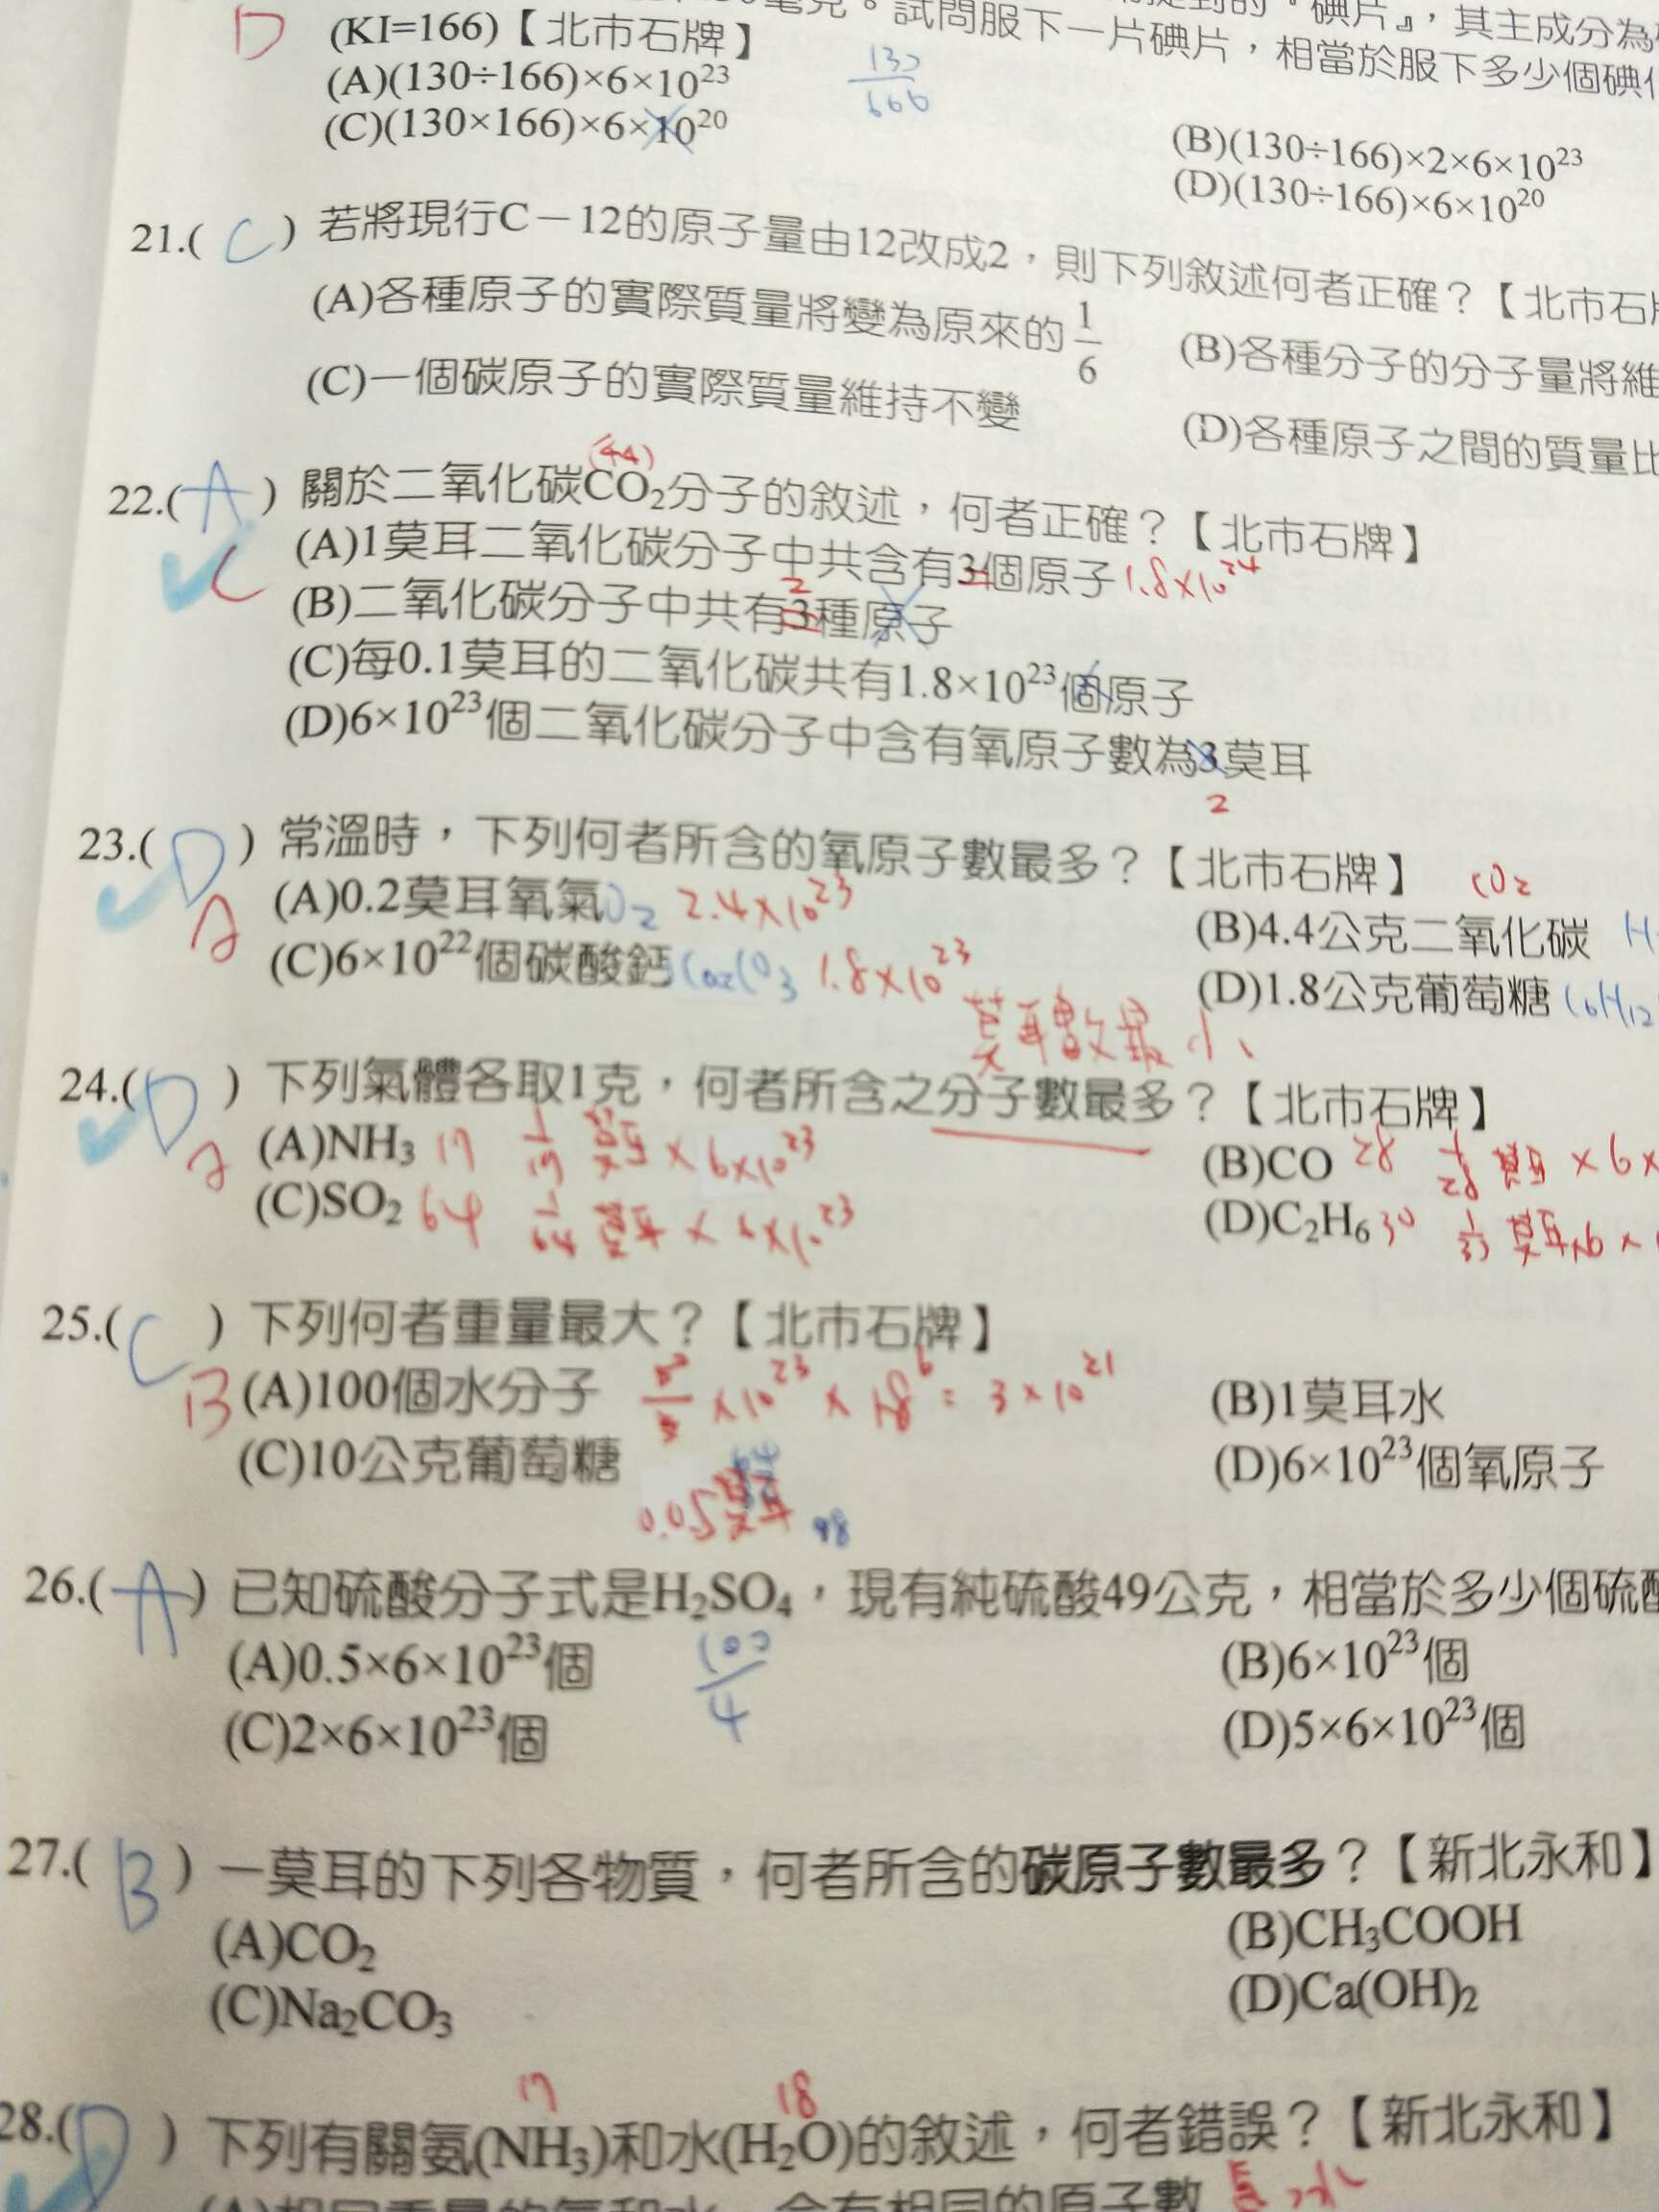 毫克。試問服下一片碘片，相當於服下多少個碘
『碘片』，其主成分為
D (KI=166)【北市石牌】
(A)(130÷166)×6×10²³
(B)(130÷166)×2×6×10²³
(C)(130×166)×6×10²⁰
(D)(130÷166)×6×10²⁰
21.( C ) 若將現行C－12的原子量由12改成2，則下列敘述何者正確？【北市石
(A)各種原子的實際質量將變為原來的1/6
(B)各種分子的分子量將維
(C)一個碳原子的實際質量維持不變
(D)各種原子之間的質量比
(44)
22.( A ) 關於二氧化碳CO₂分子的敘述，何者正確？【北市石牌】
C
(A)1莫耳二氧化碳分子中共含有3個原子 1.8×10²⁴
(B)二氧化碳分子中共有3種原子
2
(C)每0.1莫耳的二氧化碳共有1.8×10²³個原子
(D)6×10²³個二氧化碳分子中含有氧原子數為3莫耳
2
23.( D ) 常溫時，下列何者所含的氧原子數最多？【北市石牌】
A
(A)0.2莫耳氧氣 O₂ 2.4×10²³
(B)4.4公克二氧化碳
CO₂
(C)6×10²²個碳酸鈣 1.8×10²³
(D)1.8公克葡萄糖 C₆H₁₂
莫耳數最小
24.( D ) 下列氣體各取1克，何者所含之分子數最多？【北市石牌】
A
(A)NH₃ 17 1/17 莫耳×6×10²³
(B)CO 28 1/28 莫耳×6×
(C)SO₂ 64 1/64 莫耳×6×10²³
(D)C₂H₆ 30 莫耳×6×
25.( C ) 下列何者重量最大？【北市石牌】
B
(A)100個水分子 ×10²³×18 = 3×10²¹
(B)1莫耳水
(C)10公克葡萄糖
(D)6×10²³個氧原子
0.05莫耳
98
26.( A ) 已知硫酸分子式是H₂SO₄，現有純硫酸49公克，相當於多少個硫酸
(A)0.5×6×10²³個
(B)6×10²³個
100/4
(C)2×6×10²³個
(D)5×6×10²³個
27.( B ) 一莫耳的下列各物質，何者所含的碳原子數最多？【新北永和】
(A)CO₂
(B)CH₃COOH
(C)Na₂CO₃
(D)Ca(OH)₂
17 18
28.( D ) 下列有關氨(NH₃)和水(H₂O)的敘述，何者錯誤？【新北永和】
(A)相同重量的氨和水，含有相同的原子數